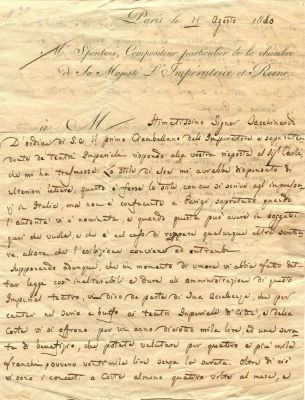 Paris le 11 Agosto 1810
Mr. Spontini, Compositeur particulier de la chambre
de Sa Majesté L'Impératrice et Reine
à M
Stimatissimo Signor Tacchinardi
D'ordine di S. E. il primo Ciambellano dell'Imperatore e soprinten
dente de teatri Imperiali rispondo alla vostra risposta al Sigr
che mi ha trasmessa. Lo stile di essa mi avrebbe dispensato di
ulteriori lettere, questo è forse lo stile con cui si scrive agl'impresa
rj in Italia, ma non è confacente a Parigi, soprattutto quando
l'autorità vi è nominata e quando questa può avere in soggetti
quei che vuole, e che è al caso di qualunque altra scrittu
ra, allorchè l'esibizione conviene ad entrambi.
Supponendo adunque, che un momento di umore vi abbia fatto det
tar leggi così inalterabili e dure all'amministrazione di questo
Imperial teatro, vi dico da parte di Sua Eccellenza, che per
cantar nel serio e buffo ai teatri Imperiali di Città, e della
Corte vi si offrono per un anno dieciotto mila lire, ed una sera
ta di benefizio, che potete valutare per quattro e più mila
franchi, ventimila lire senza la serata. Oltre di ciò
vi sono i concerti a Corte almeno quattro volte al mese, e